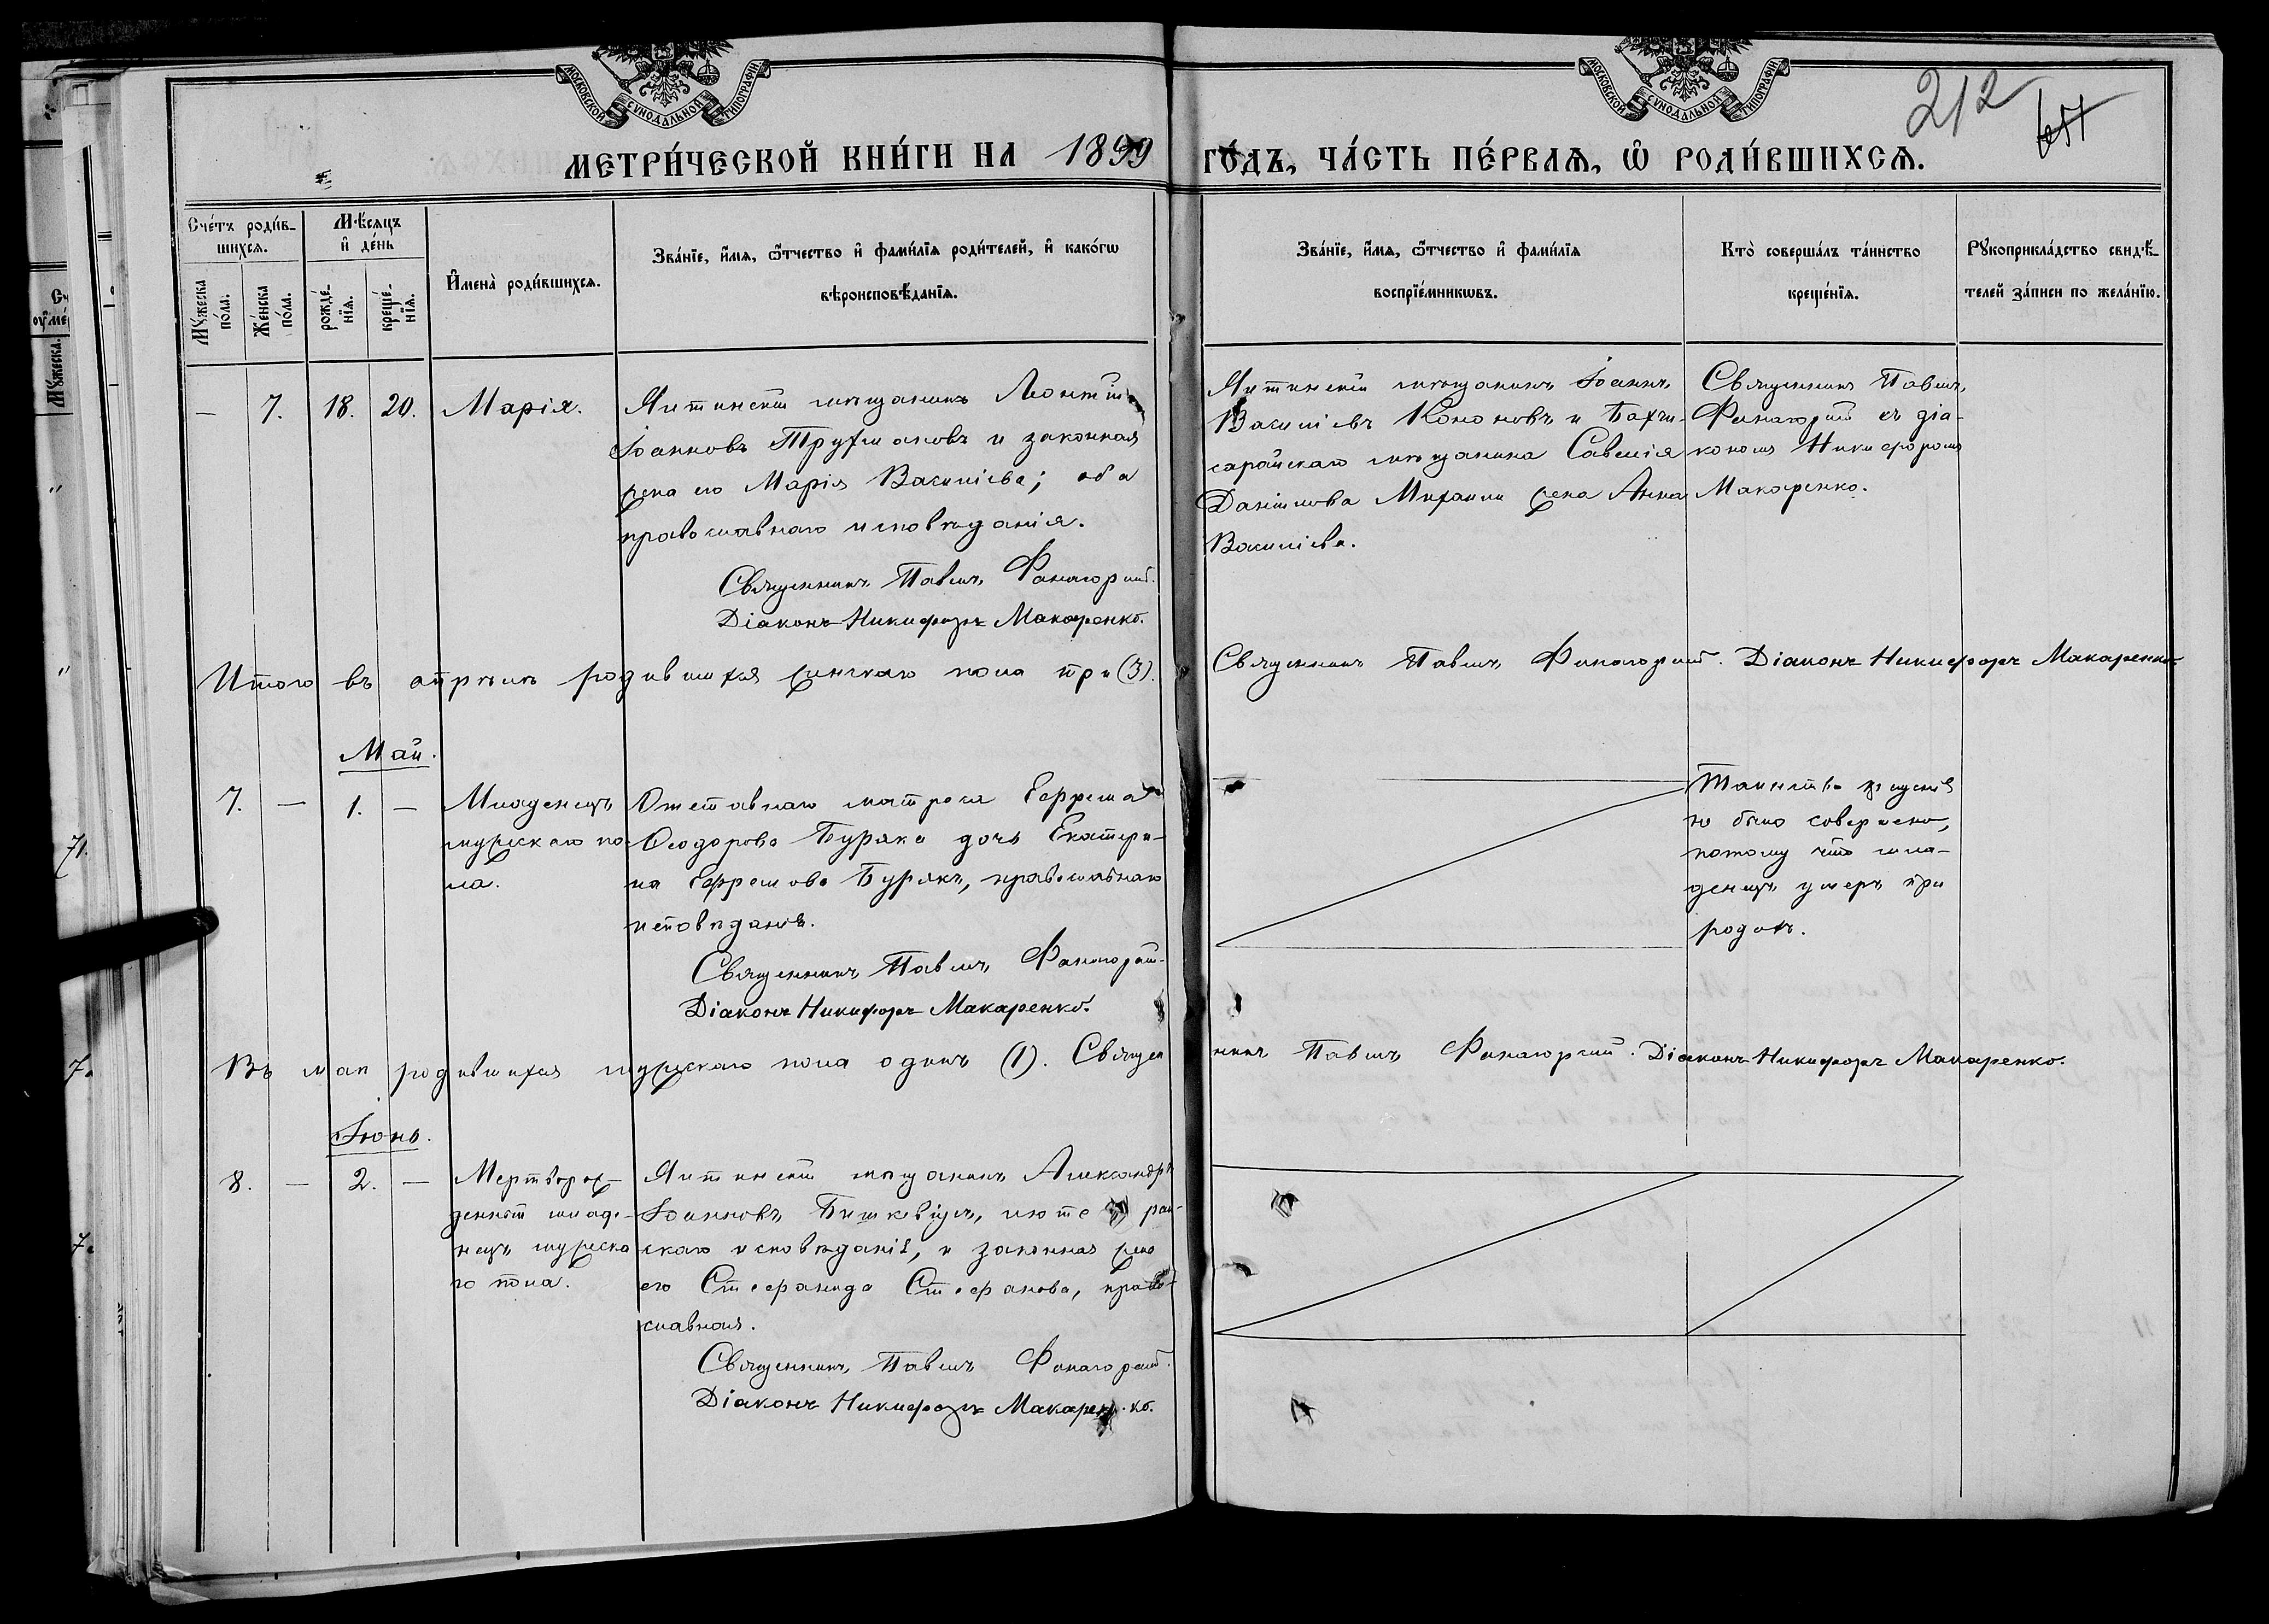 МОСКОВСКОЙ СѴНОДАЛЬНОЙ ТИПОГРАФІИ
МОСКОВСКОЙ СѴНОДАЛЬНОЙ ТИПОГРАФІИ
212
651
МЕТРИ́ЧЕСКОЙ КНИ́ГИ НА 1899 ГО́ДЪ, ЧА́СТЬ ПЕ́РВАѦ, Ѽ РОДИ́ВШИХСѦ.
Сче́тъ роди́в-
шихся.
Мꙋ́жеска
по́ла.
Же́нска
по́ла.
Мѣ́сяцъ
и҆ де́нь
рожде́-
нїя.
креще́-
нїя.
И҆мена̀ роди́вшихся.
Зва́нїе, и҆́мя, ѻ҆́тчество и҆ фами́лїя роди́телей, и҆ како́гѡ
вѣроисповѣ́данїя.
Зва́нїе, и҆́мя, ѻ҆́тчество и҆ фами́лїя
воспрїе́мникѡвъ.
Кто̀ соверша́лъ та́инство
креще́нїя.
Рꙋкоприкла́дство свидѣ́-
телей за́писи по жела́нїю.
— 7. 18. 20. Марія.
Ялтинскій мѣщанинъ Леонтій
Іоанновъ Трухмановъ и законная
жена его Марія Василіева; оба
православнаго исповѣданія.
Священникъ Павелъ Фанагорскій.
Діаконъ Никифоръ Макаренко.
Ялтинскій мѣщанинъ Іоаннъ
Василіевъ Кононовъ и Бахчи-
сарайскаго мѣщанина Савелія
Даніилова жена Анна
Василіева.
Священникъ Павелъ
Фанагорскій съ діа-
кономъ Никифоромъ
Макаренко.
Итого въ апрѣлѣ родившихся женскаго пола три (3). Священникъ Павелъ Фанагорскій. Діаконъ Никифоръ Макаренко
Май.
7. — 1. — Младенецъ
мужскаго по-
ла.
Отставнаго матроса Ефрема
Ѳеодорова Буряка дочь Екатери-
на Ефремова Бурякъ, православнаго
исповѣданія.
Священникъ Павелъ Фанагорскій.
Діаконъ Никифоръ Макаренко.
Таинство крещенія
не было совершено,
потому что мла-
денецъ умеръ при
родахъ.
Въ маѣ родившихся мужскаго пола одинъ (1). Священникъ Павелъ Фанагорскій. Діаконъ Никифоръ Макаренко.
Іюнь.
8. — 2. — Мертворож-
денный младе-
нецъ мужска
го пола.
Ялтинскій мѣщанинъ Александръ
Іоанновъ Бишкевичъ, лютеран-
скаго исповѣданія, и законная жена
его Стефанида Стефанова, право-
славная.
Священникъ Павелъ Фанагорскій.
Діаконъ Никифоръ Макаренко.